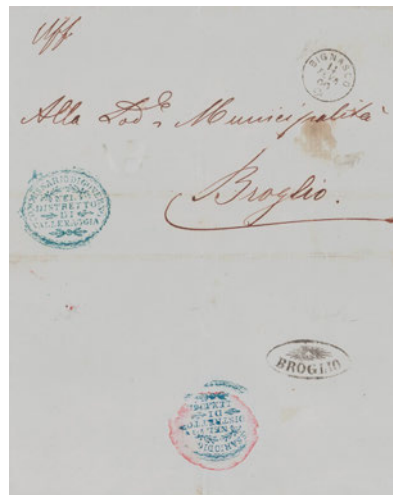 Uff.
BIGNASCO
11
Alla Lod.e Municipalità
Broglio.
COMMISSARIO DI GOVERNO
NEL
DISTRETTO
DI
VALLEMAGGIA
BROGLIO
DISTRETTO
DI